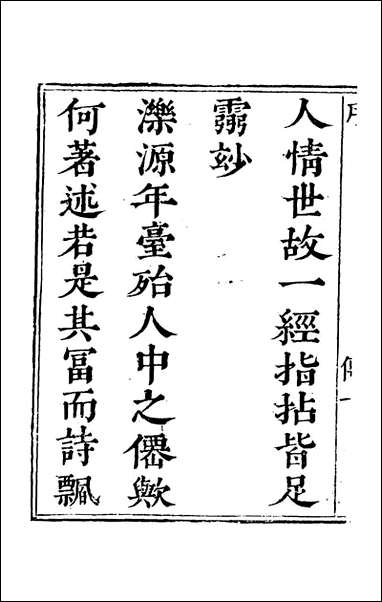 人情世故一經指拈皆足
霛玅
濼源年臺殆人中之僊歟
何著述若是其冨而詩飄